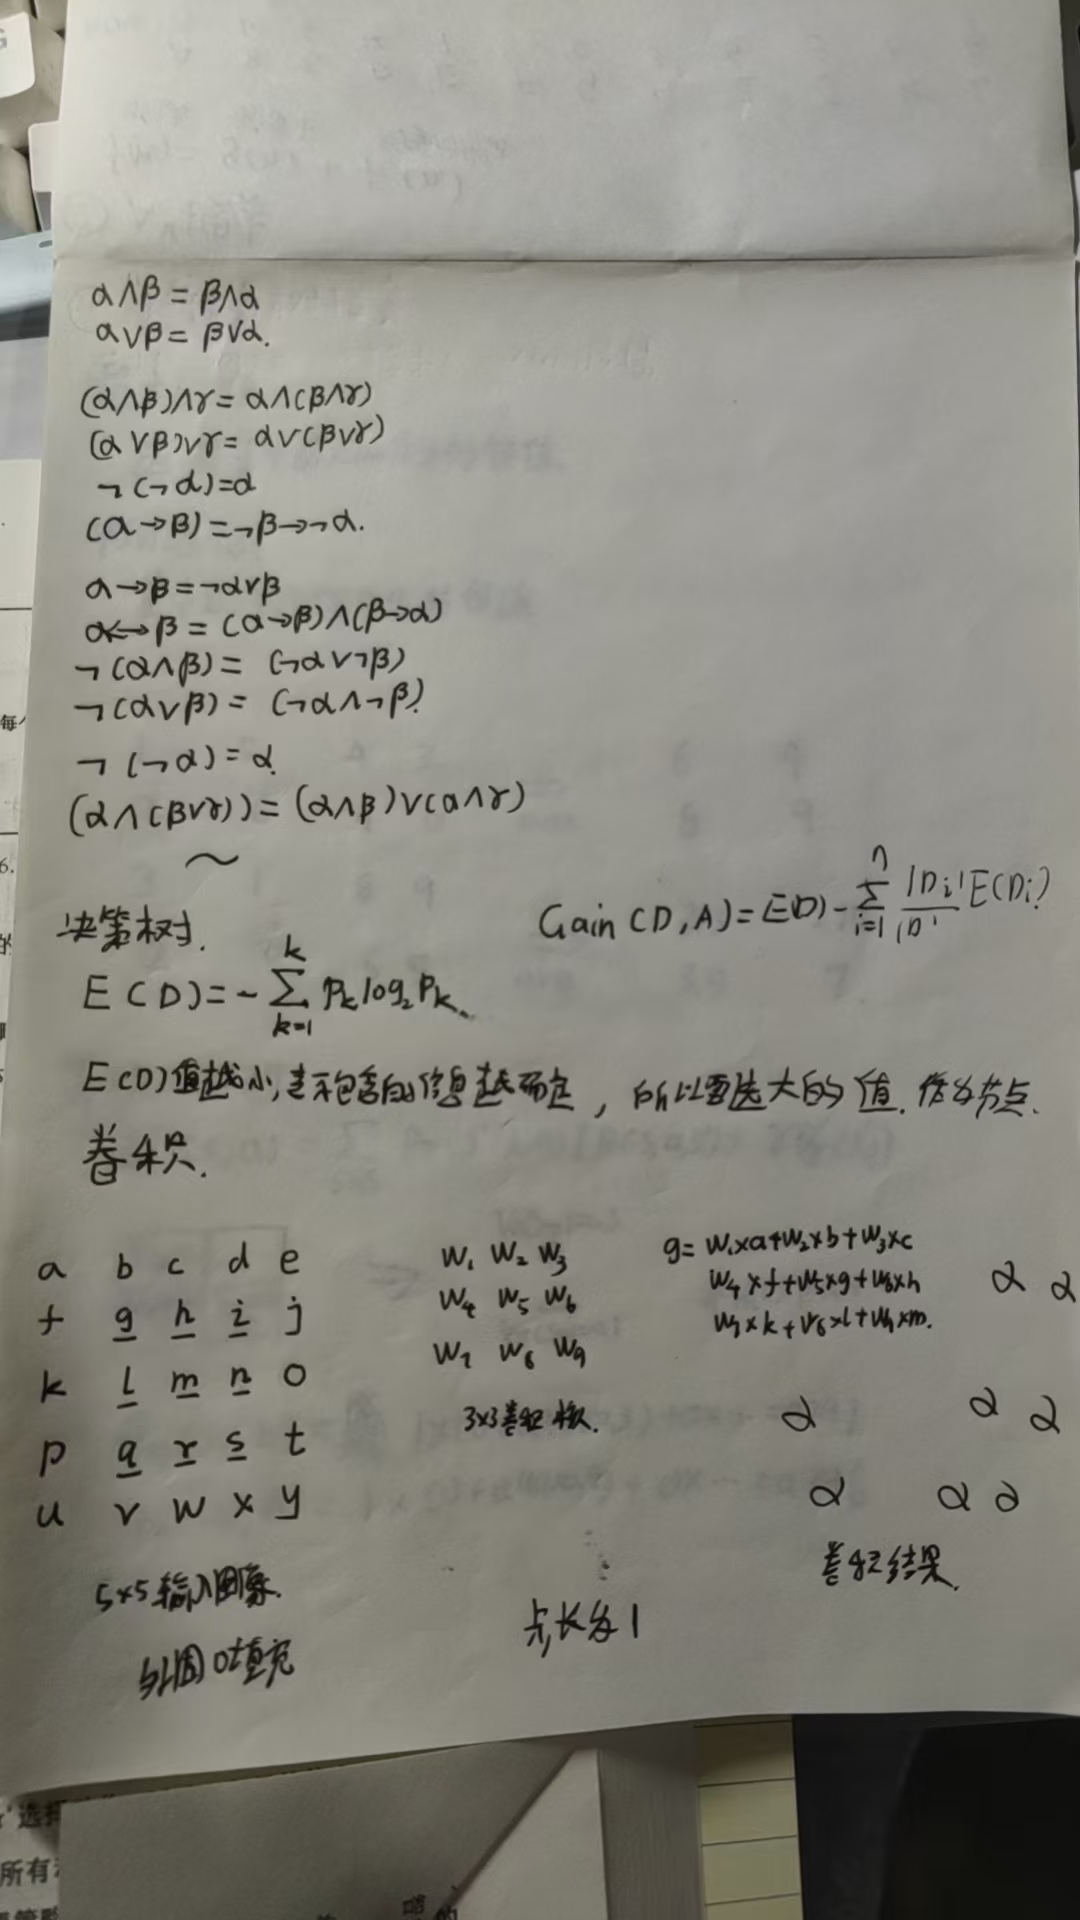 α∧β = β∧α
α∨β = β∨α.
(α∧β)∧γ = α∧(β∧γ)
(α∨β)∨γ = α∨(β∨γ)
¬(¬α)=α
(α→β)=¬β→¬α.
α→β=¬α∨β
α↔β = (α→β)∧(β→α)
¬(α∧β) = (¬α∨¬β)
¬(α∨β) = (¬α∧¬β)
¬(¬α)=α
(α∧(β∨γ))=(α∧β)∨(α∧γ)
~
决策树.
Gain(D,A)=E(D)-∑ n i=1 |Di|/|D| E(Di)
E(D)=-∑ k k=1 Pk log₂ Pk.
E(D)值越小,表示包含的信息越确定,所以要选大的值.作为节点.
卷积.
a b c d e
f g h i j
k l m n o
p q r s t
u v w x y
5×5输入图像.
外周0填充
W₁ W₂ W₃
W₄ W₅ W₆
W₇ W₈ W₉
3×3卷积核.
步长为1
g= W₁×a+W₂×b+W₃×c
W₄×f+W₅×g+W₆×h
W₇×k+W₈×l+W₉×m.
α α
α α α
α α α
卷积结果.
每
6.
的
选择
所有